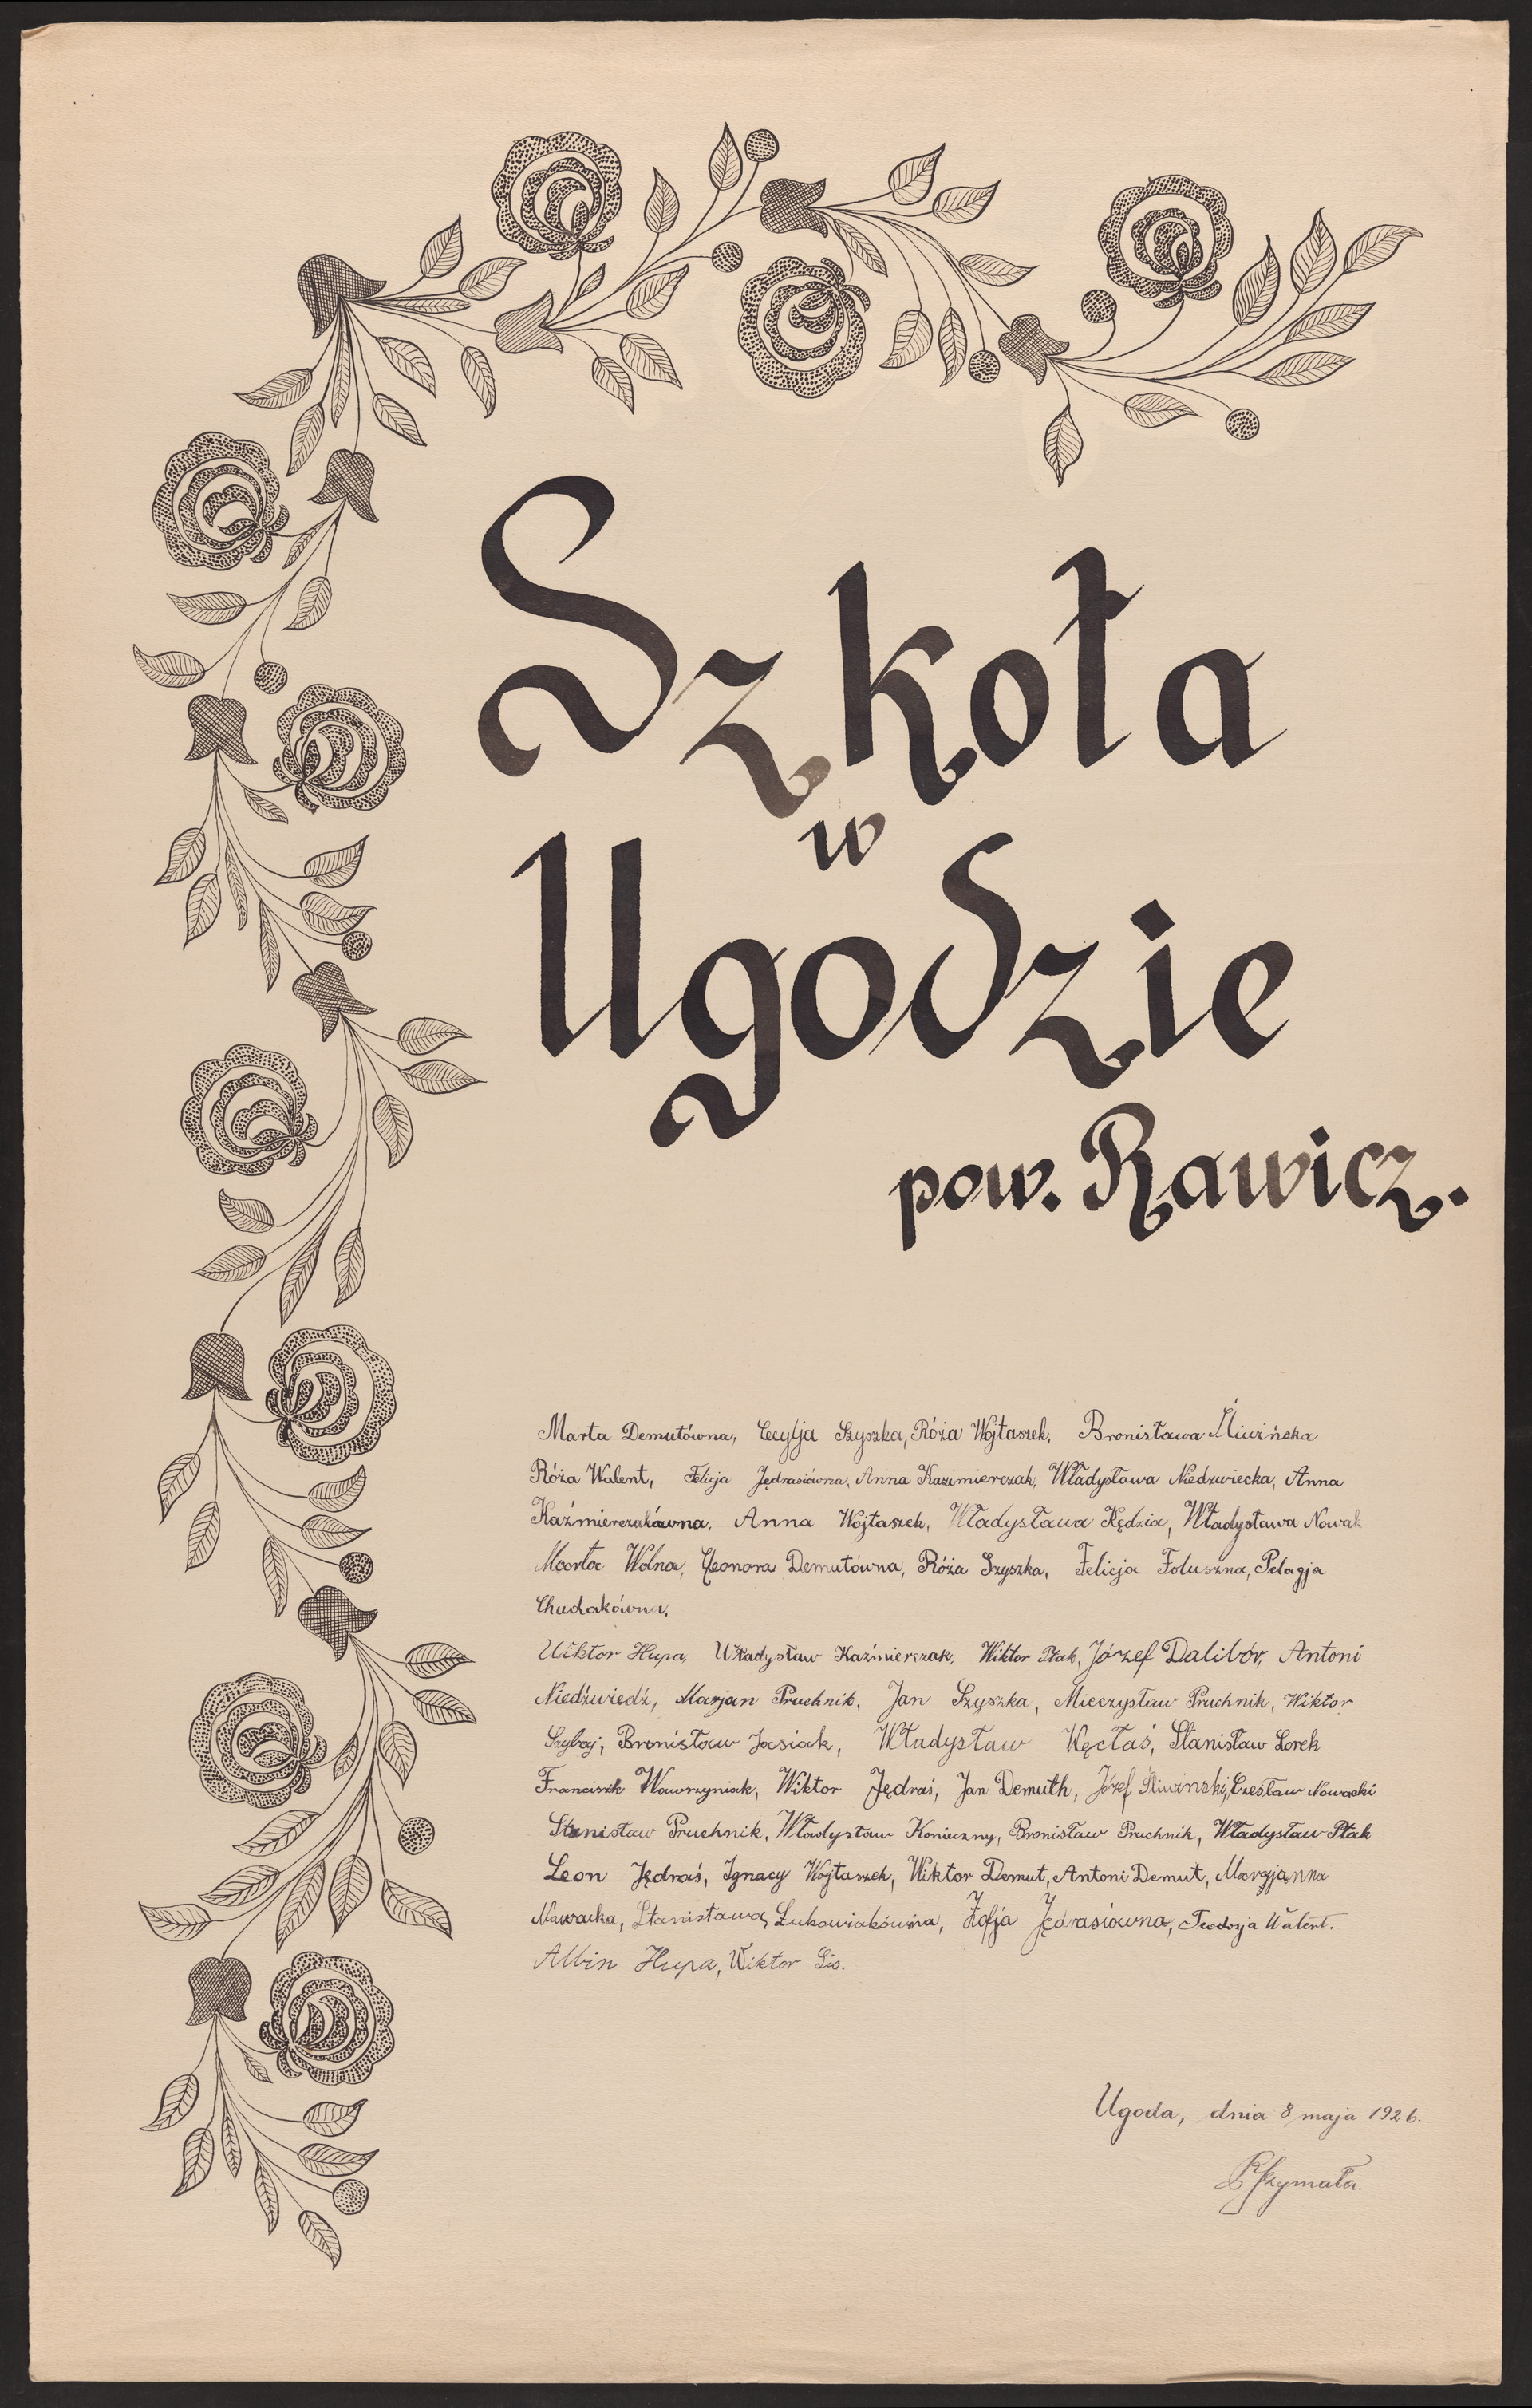 Szkoła
w
Ugodzie
pow. Rawicz.
Marta Demutówna, Cecylja Szyszka, Róża Wojtaszek, Bronisława Śliwińska
Róża Walent, Felicja Jędrasiówna, Anna Kazimierczak, Władysława Niedzwiecka, Anna
Kaźmierczakówna, Anna Wojtaszek, Władysława Kędzia, Władysława Nowak
Marta Wolna, Eleonora Demutówna, Róża Szyszka, Felicja Foluszna, Pelagja
Chudakówna.
Wiktor Hupa, Władysław Kaźmierczak, Wiktor Ptak, Józef Dalibór, Antoni
Niedźwiedź, Marjan Pruchnik, Jan Szyszka, Mieczysław Pruchnik, Wiktor
Szybaj, Bronisław Jasiak, Władysław Kęctaś, Stanisław Lorek
Franciszek Wawrzyniak, Wiktor Jędraś, Jan Demuth, Józef Śliwinski, Czesław Nowacki
Stanisław Pruchnik, Władysław Konieczny, Bronisław Pruchnik, Władysław Ptak
Leon Jędraś, Ignacy Wojtaszek, Wiktor Demut, Antoni Demut, Marjanna
Nawracka, Stanisława Łukowiakówna, Zofja Jędrasiówna, Teodozja Walent.
Albin Hupa, Wiktor Lis.
Ugoda, dnia 8 maja 1926.
Szymała.